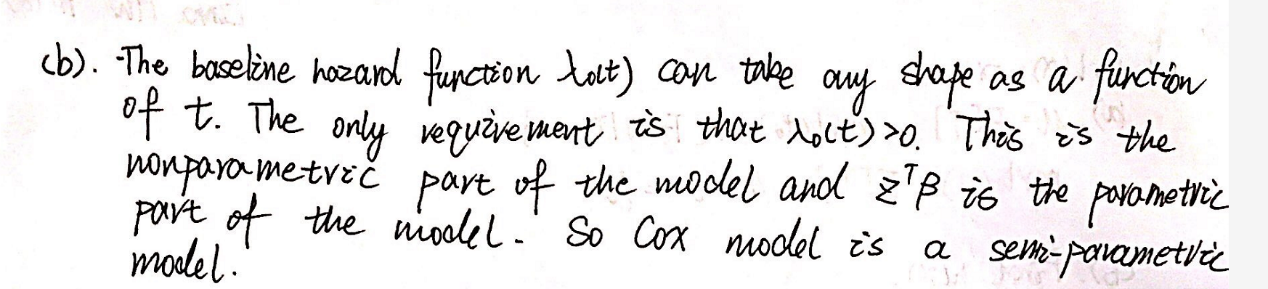 (b). The baseline hazard function λ₀(t) can take any shape as a function
of t. The only requirement is that λ₀(t)>0. This is the
nonparametric part of the model and zᵀβ is the parametric
part of the model. So Cox model is a semi-parametric
model.